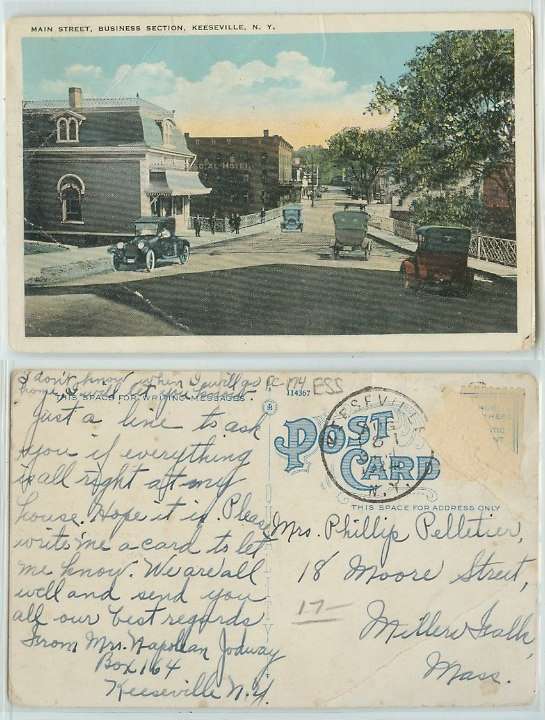 MAIN STREET, BUSINESS SECTION, KEESEVILLE, N. Y.
HOTEL
I don't know when I will go
home
PC-174 ESS
THIS SPACE FOR WRITING MESSAGES
114367
Just a line to ask
you if everything
is all right at my
house. Hope it is. Please
write me a card to let
me know. We are all
well and send you
all our best regards
From Mrs. Napolean Jodway
Box 164
Keeseville N.Y.
POST CARD
KEESEVILLE
N.Y.
THIS SPACE FOR ADDRESS ONLY
Mrs. Phillip Pelletier,
18 Moore Street,
17-
Millers Falls,
Mass.